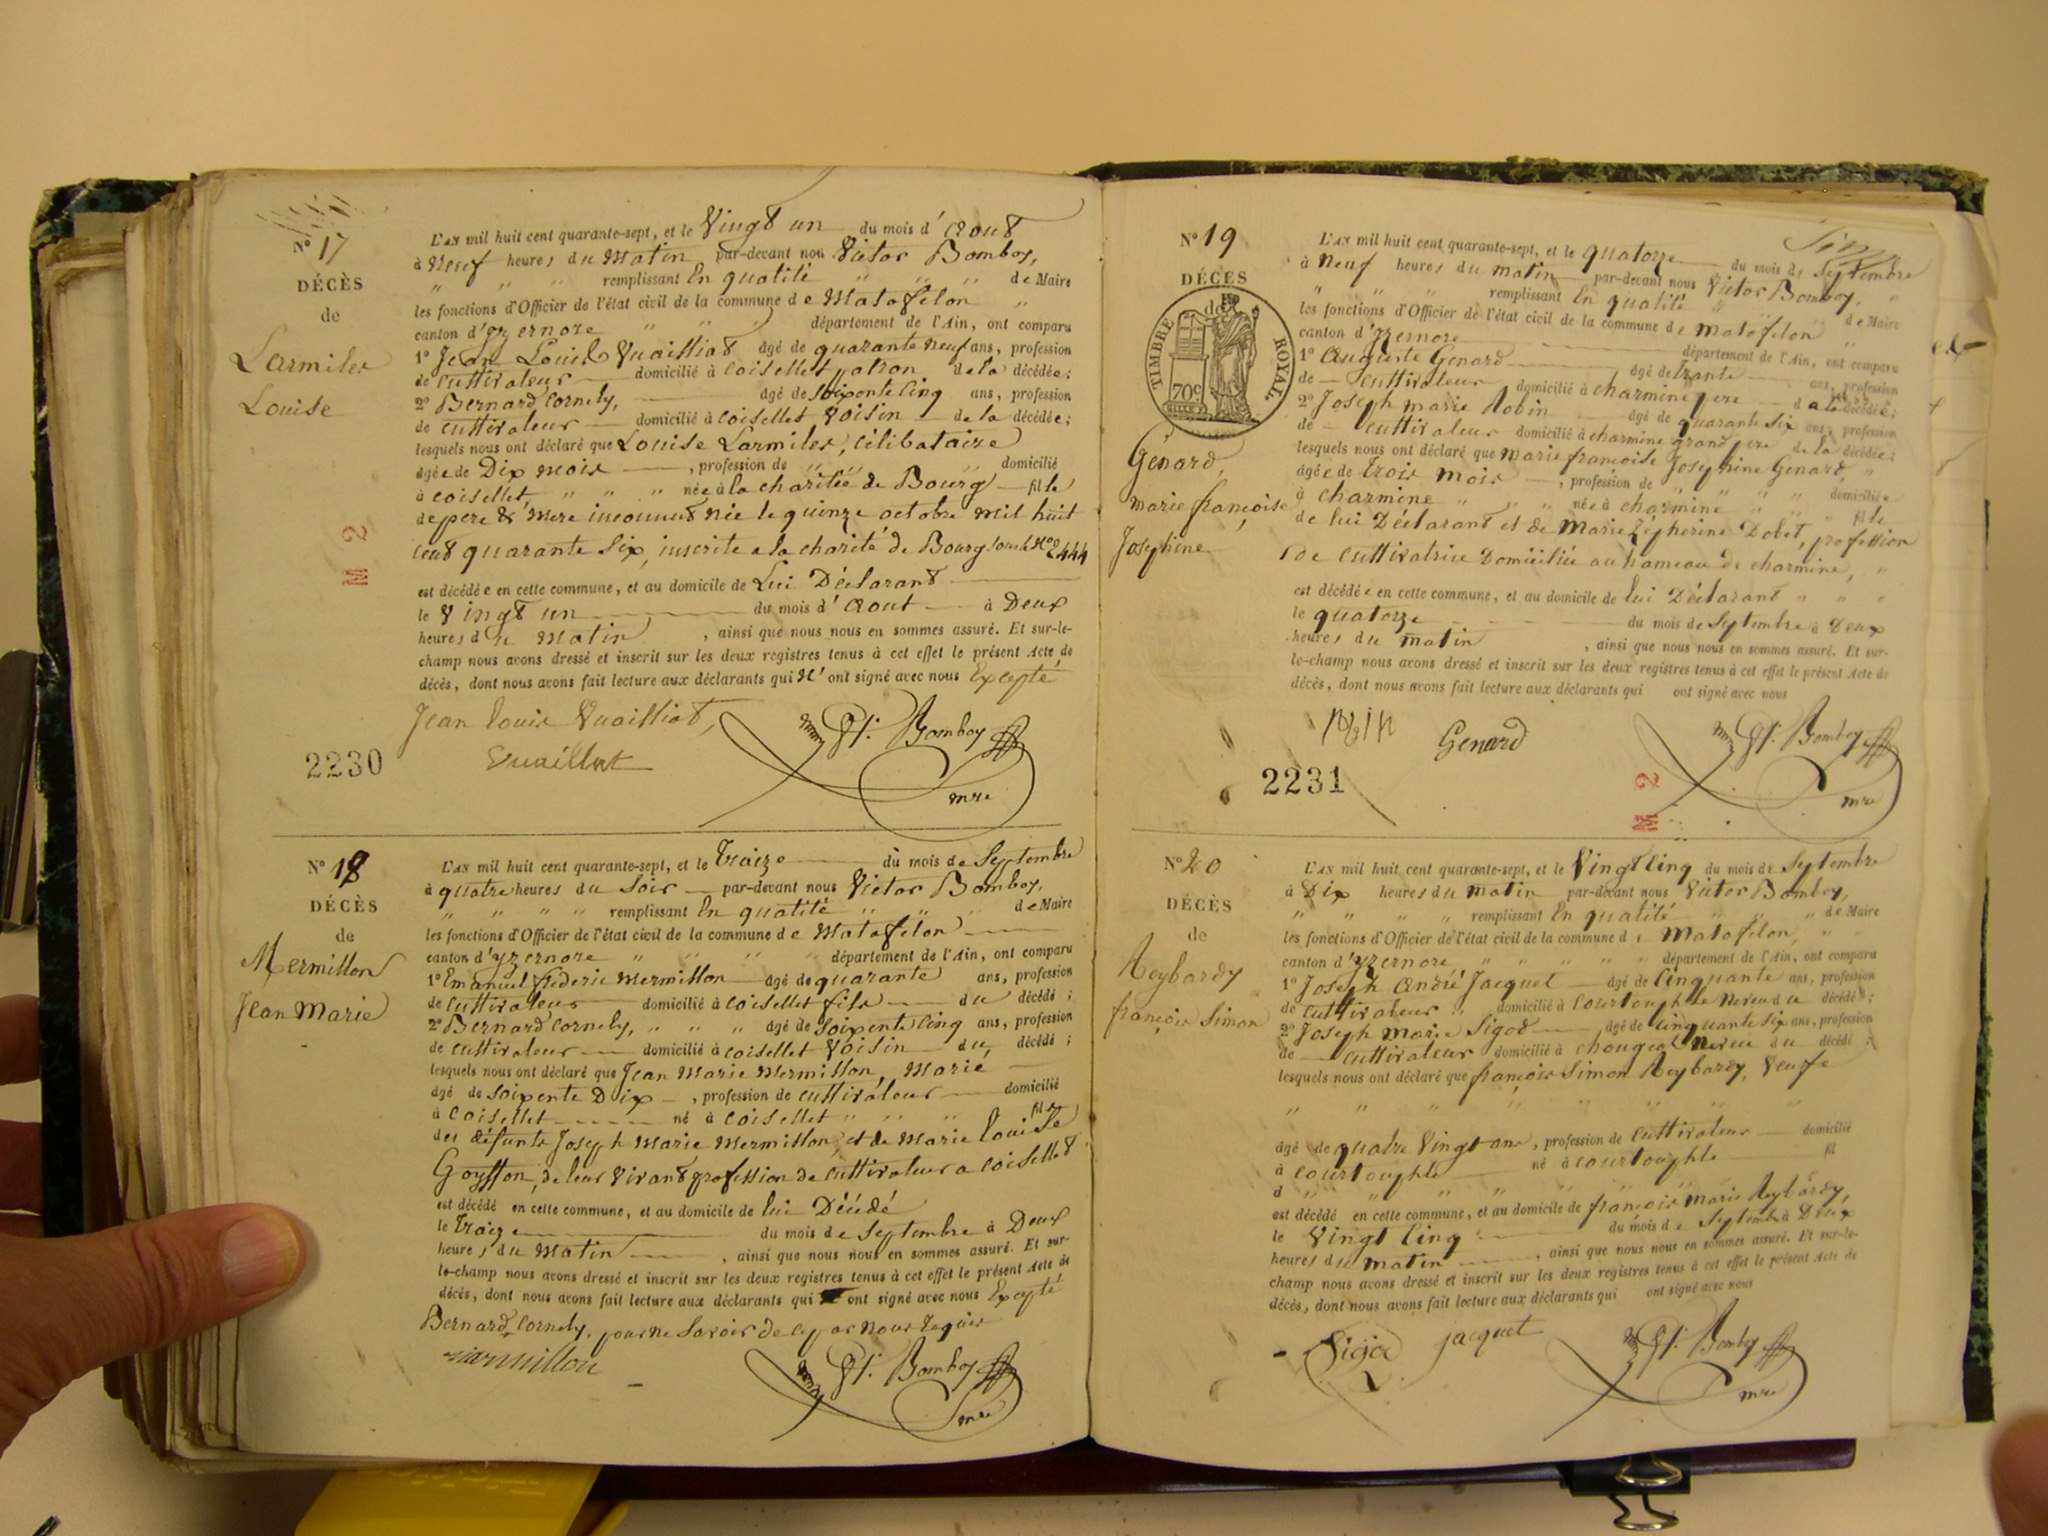 N° 17
DÉCÈS
de
Larmiler
Louise
L'AN mil huit cent quarante-sept, et le Vingt un du mois d' aout
à Neuf heures du Matin par-devant nou Victor Bomboy,
" " " remplissant En qualité " " " de Maire
les fonctions d'Officier de l'état civil de la commune de Matafélon "
canton d'yzernore " " " département de l'Ain, ont comparu
1° Jean Louis Vuailliat âgé de quarante neuf ans, profession
de cultivateur domicilié à coisellet patron de la décédée;
2° Bernard Cornely, âgé de soixente cinq ans, profession
de cultivateur domicilié à coisellet Voisin de la décédée;
lesquels nous ont déclaré que Louise Larmiler, célibataire
âgée de Dix mois , profession de " " domicilié
à coisellet, " " " née à la charitéé de Bourg fille
de pere & mere inconnus née le quinze octobre mil huit
cent quarante six, inscrite a la charité de Bourg sous le No 444
est décédée en cette commune, et au domicile de Lui Déclarant
le Vingt un du mois d' aout à Deux
heures du Matin , ainsi que nous nous en sommes assuré. Et sur-le-
champ nous avons dressé et inscrit sur les deux registres tenus à cet effet le présent Acte de
décès, dont nous avons fait lecture aux déclarants qui N' ont signé avec nous Excepté
Jean Louis Vuailliat,
Vuaillat
Vt. Bomboy
mre
2230
M 2
N° 18
DÉCÈS
de
Mermillon
Jean Marie
L'AN mil huit cent quarante-sept, et le Traize du mois de Septembre
à quatre heures du Soir par-devant nous Victor Bomboy,
" " " " remplissant En qualité " " " de Maire
les fonctions d'Officier de l'état civil de la commune de Matafélon
canton d'yzernore " " " " département de l'Ain, ont comparu
1° Emanuel fréderic Mermillon âgé de quarante ans, profession
de cultivateur domicilié à coisellet fils du décédé;
2° Bernard Cornely, " " " âgé de soixente cinq ans, profession
de cultivateur domicilié à coisellet Voisin du décédé;
lesquels nous ont déclaré que Jean Marie Mermillon, Marié
âgé de soixente Dix , profession de cultivateur domicilié
à coisellet né à coisellet " " " fils
des défunts Joseph Marie Mermillon, et de Marie Louise
Goyffon, de leur Vivant profession de cultivateur a coisellet
est décédé en cette commune, et au domicile de lui Décédé
le Traize du mois de Septembre à Deux
heures du Matin , ainsi que nous nous en sommes assuré. Et sur-
le-champ nous avons dressé et inscrit sur les deux registres tenus à cet effet le présent Acte de
décès, dont nous avons fait lecture aux déclarants qui ont signé avec nous Excepté
Bernard Cornely, pour ne Savoir de ce par nous Requis
mermillon
Vt. Bomboy
mre
N° 19
DÉCÈS
de
TIMBRE ROYAL.
70c
Génard,
marie françoise
Josephine
L'AN mil huit cent quarante-sept, et le quatorze du mois de Septembre
à neuf heures du matin par-devant nous Victor Bomboy, "
" " " remplissant En qualité " " de Maire
les fonctions d'Officier de l'état civil de la commune de matafelon "
canton d'yzernore département de l'Ain, ont comparu
1° Auguste Genard âgé de trante ans, profession
de cultivateur domicilié à charmine pere de la décédée;
2° Joseph marie Robin âgé de quarante six ans, profession
de cultivateur domicilié à charmine grand pere de la décédée;
lesquels nous ont déclaré que marie françoise Josephine Genard, "
âgée de trois mois , profession de " " domiciliée
à charmine " " " née à charmine " " fille
de lui Déclarant et de Marie Zépherine Dobet, profession
de cultivatrice Domiciliée au hameau de charmine, "
est décédée en cette commune, et au domicile de lui Déclarant " " "
le quatorze du mois de Septembre à Deux
heures du matin , ainsi que nous nous en sommes assuré. Et sur-
le-champ nous avons dressé et inscrit sur les deux registres tenus à cet effet le présent Acte de
décès, dont nous avons fait lecture aux déclarants qui ont signé avec nous
Genard
Vt. Bomboy
mre
2231
M 2
N° 20
DÉCÈS
de
Reybardy
françois Simon
L'AN mil huit cent quarante-sept, et le Vingt cinq du mois de Septembre
à Dix heures du matin par-devant nous Victor Bomboy,
" " " " remplissant En qualité " " " de Maire
les fonctions d'Officier de l'état civil de la commune de Matafelon, "
canton d'yzernore " " " " " département de l'Ain, ont comparu
1° Joseph André Jacquet âgé de cinquante ans, profession
de cultivateur " domicilié à courtouphle neveu du décédé;
2° Joseph Marie Sigod âgé de cinquante six ans, profession
de cultivateur domicilié à chougeat neveu du décédé;
lesquels nous ont déclaré que françois Simon Reybardy, Veufe
" " " " " " " "
âgé de quatre vingt ans , profession de cultivateur domicilié
à courtouphle né à courtouphle fil
d " " " " " " "
est décédé en cette commune, et au domicile de françois marie Reybardy,
le Vingt cinq du mois de Septembre à Deux
heures du matin , ainsi que nous nous en sommes assuré. Et sur-le-
champ nous avons dressé et inscrit sur les deux registres tenus à cet effet le présent Acte de
décès, dont nous avons fait lecture aux déclarants qui ont signé avec nous
Sigod jacquet
Vt. Bomboy
mre